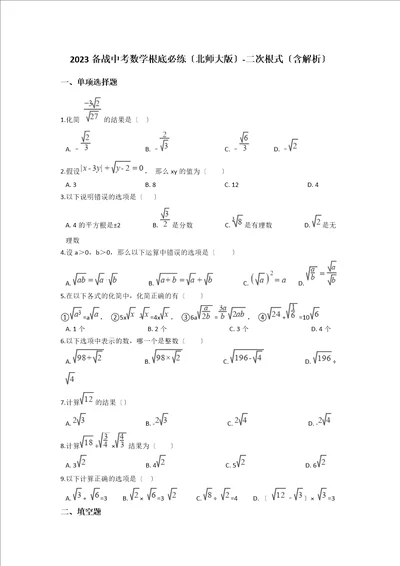 2023 备战中考数学根底必练〔北师大版〕-二次根式〔含解析〕
一、单项选择题
1.化简 -3√2/√27 的结果是〔 〕
A. - √2/3 B. - 2/√3 C. - √6/3 D. - √2
2.假设 |x-3y|+√y-2=0 , 那么 xy 的值为〔 〕
A. 3 B. 8 C. 12 D. 4
3.以下说明错误的选项是〔 〕
A. 4 的平方根是±2 B. √3/2 是分数 C. ∛8 是有理数 D. √2 是无
理数
4.设 a>0, b>0, 那么以下运算中错误的选项是〔 〕
A. √ab=√a·√b B. √a+b=√a+√b C. (√a)²=a D. √a/b=√a/√b
5.在以下各式的化简中, 化简正确的有〔 〕
① √a³=a√a , ②5x√x √x=4x√x , ③6a√a/2b = 3a/b √2ab , ④ √24+√1/6=10√6
A. 1 个 B. 2 个 C. 3 个 D. 4 个
6.以下选项中表示的数, 哪一个是整数〔 〕
A. √98+√2 B. √98×√2 C. √196-√4 D. √196 +
√4
7.计算 √12 的结果〔 〕
A. 2√3 B. -2√3 C. 2√4 D. -2√4
8.计算 √18 + √3/4 × √4/3 结果为〔 〕
A. 3√2 B. 4√2 C. 5√2 D. 6√2
9.以下计算正确的选项是〔 〕
A. √3+√6=3 B. √2×√6=3√2 C. √8+√2=4 D. 〔√12-√3〕×√3=3
二、填空题